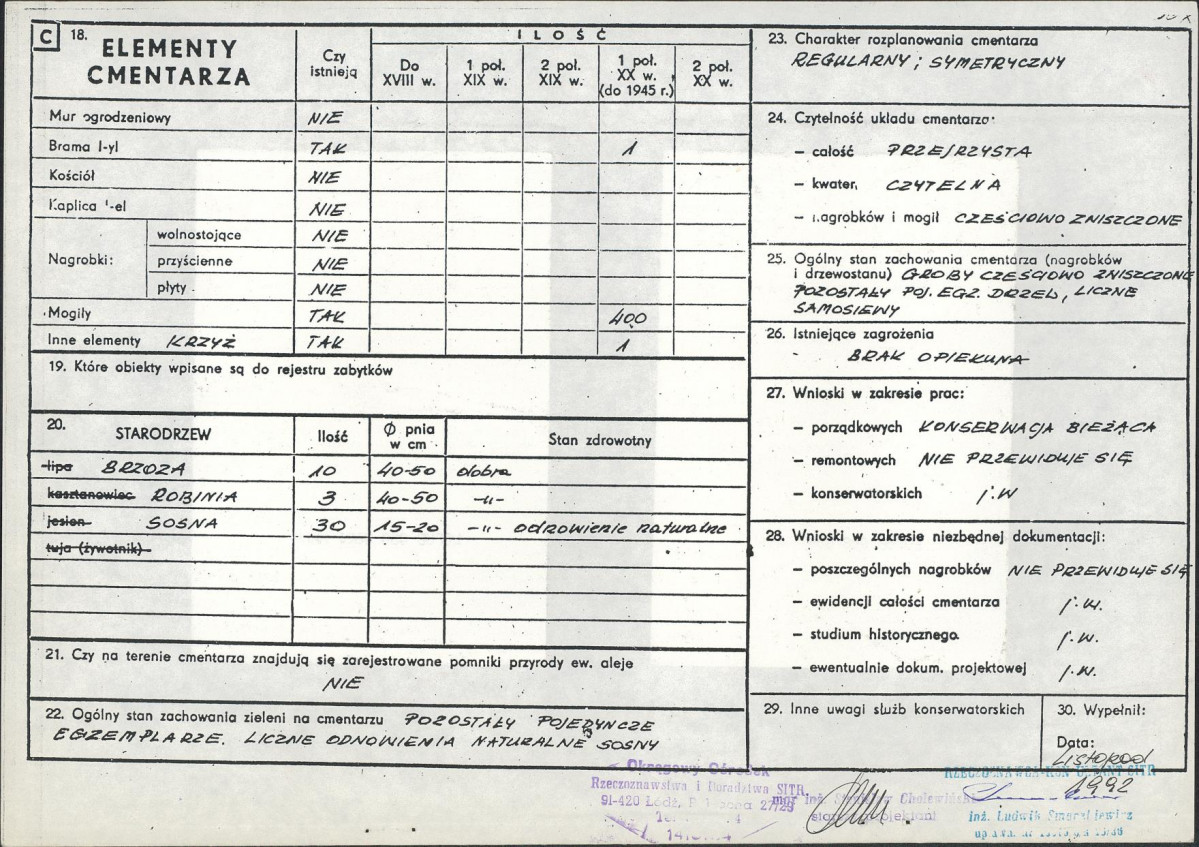 C 18. ELEMENTY CMENTARZA
Czy istnieją
ILOŚĆ
Do XVIII w.
1 poł. XIX w.
2 poł. XIX w.
1 poł. XX w. (do 1945 r.)
2 poł. XX w.
Mur ogrodzeniowy NIE
Brama 1-yl TAK 1
Kościół NIE
Kaplica -el NIE
Nagrobki:
wolnostojące NIE
przyścienne NIE
płyty NIE
Mogiły TAK 400
Inne elementy KRZYŻ TAK 1
19. Które obiekty wpisane są do rejestru zabytków
20. STARODRZEW
Ilość
Ø pnia w cm
Stan zdrowotny
lipa BRZOZA 10 40-50 dobra
kasztanowiec ROBINIA 3 40-50 -„-
jesion SOSNA 30 15-20 -„- odnowienie naturalne
tuja (żywotnik)
21. Czy na terenie cmentarza znajdują się zarejestrowane pomniki przyrody ew. aleje
NIE
22. Ogólny stan zachowania zieleni na cmentarzu POZOSTAŁY POJEDYNCZE
EGZEMPLARZE. LICZNE ODNOWIENIA NATURALNE SOSNY
23. Charakter rozplanowania cmentarza
REGULARNY; SYMETRYCZNY
24. Czytelność układu cmentarza:
– całość PRZEJRZYSTA
– kwater, CZYTELNA
– nagrobków i mogił CZEŚCIOWO ZNISZCZONE
25. Ogólny stan zachowania cmentarza (nagrobków
i drzewostanu) GROBY CZEŚCIOWO ZNISZCZONE
POZOSTAŁY POJ. EGZ. DRZEW, LICZNE
SAMOSIEWY
26. Istniejące zagrożenia
BRAK OPIEKUNA
27. Wnioski w zakresie prac:
– porządkowych KONSERWACJA BIEŻĄCA
– remontowych NIE PRZEWIDUJE SIĘ
– konserwatorskich j.w
28. Wnioski w zakresie niezbędnej dokumentacji:
– poszczególnych nagrobków NIE PRZEWIDUJE SIĘ
– ewidencji całości cmentarza j.w.
– studium historycznego j.w.
– ewentualnie dokum. projektowej j.w.
29. Inne uwagi służb konserwatorskich
30. Wypełnił:
Data:
LISTOPAD
1992
Okręgowy Ośrodek
Rzeczoznawstwa i Doradztwa SITR
91-420 Łódź, 27/29
mgr inż.
RZECZOZNAWCA-KONSULTANT SITR
inż. Ludwik